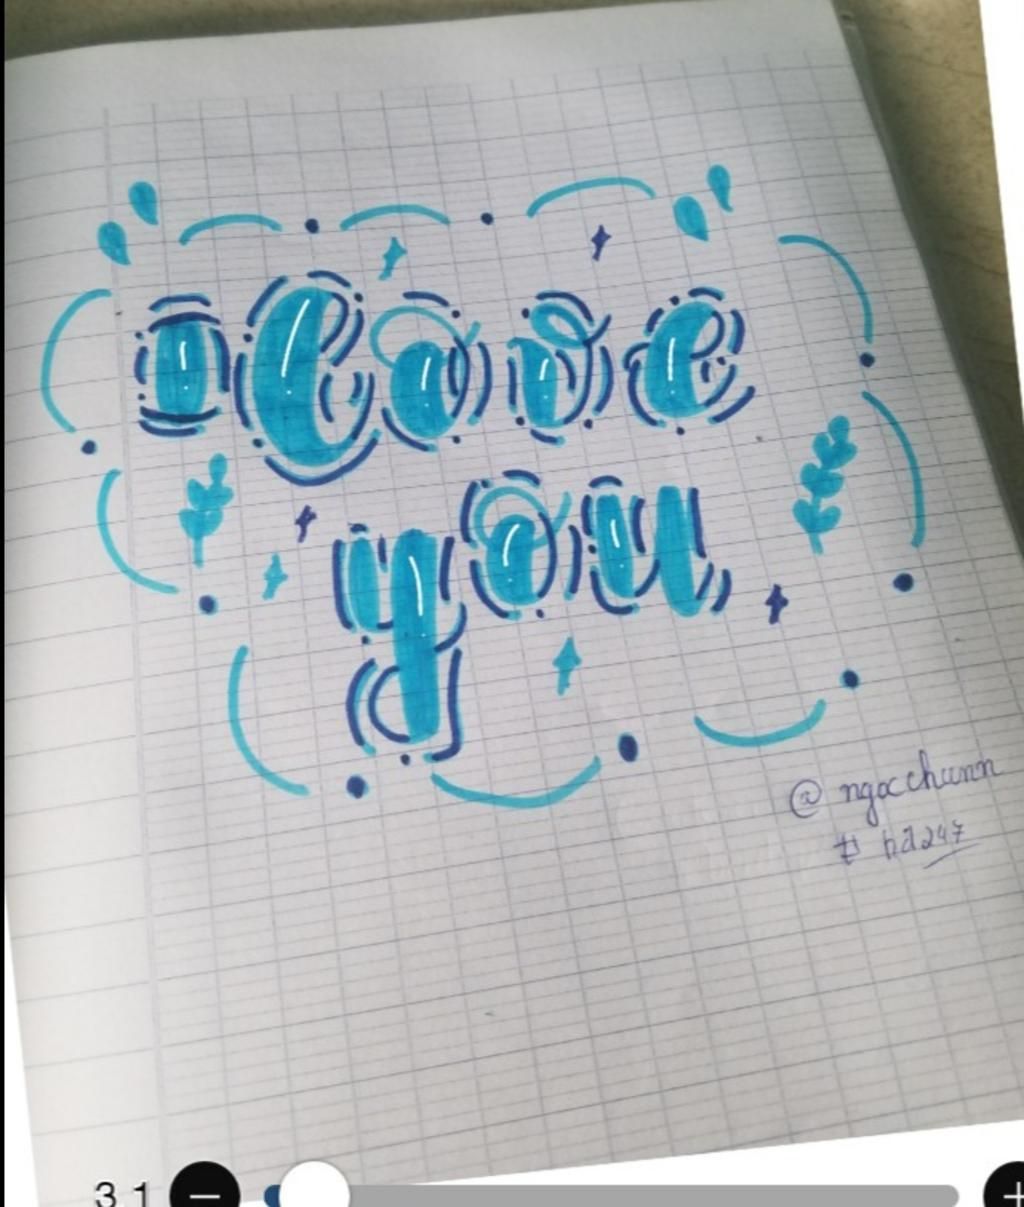 I love
you
@ ngocchunn
# hd247
3.1